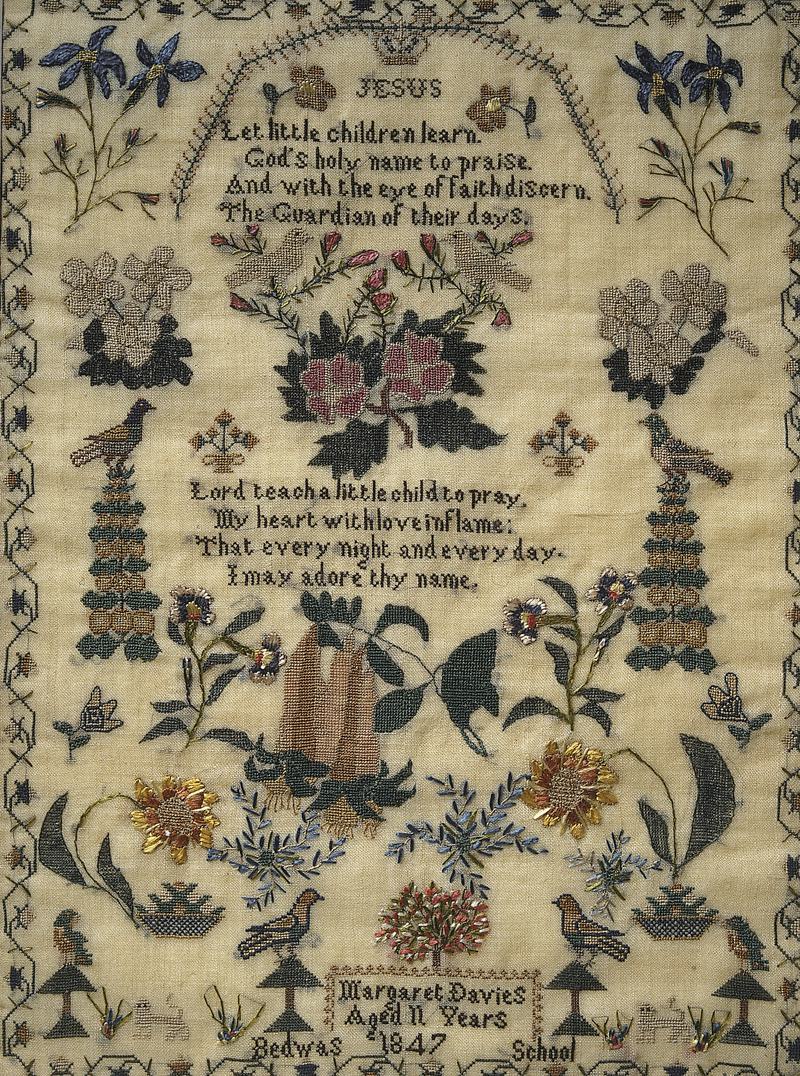 JESUS
Let little children learn.
God's holy name to praise.
And with the eye of faith discern.
The Guardian of their days.
Lord teach a little child to pray,
My heart with love inflame:
That every night and every day.
I may adore thy name.
Margaret Davies
Aged 11 Years
Bedwas 1847 School